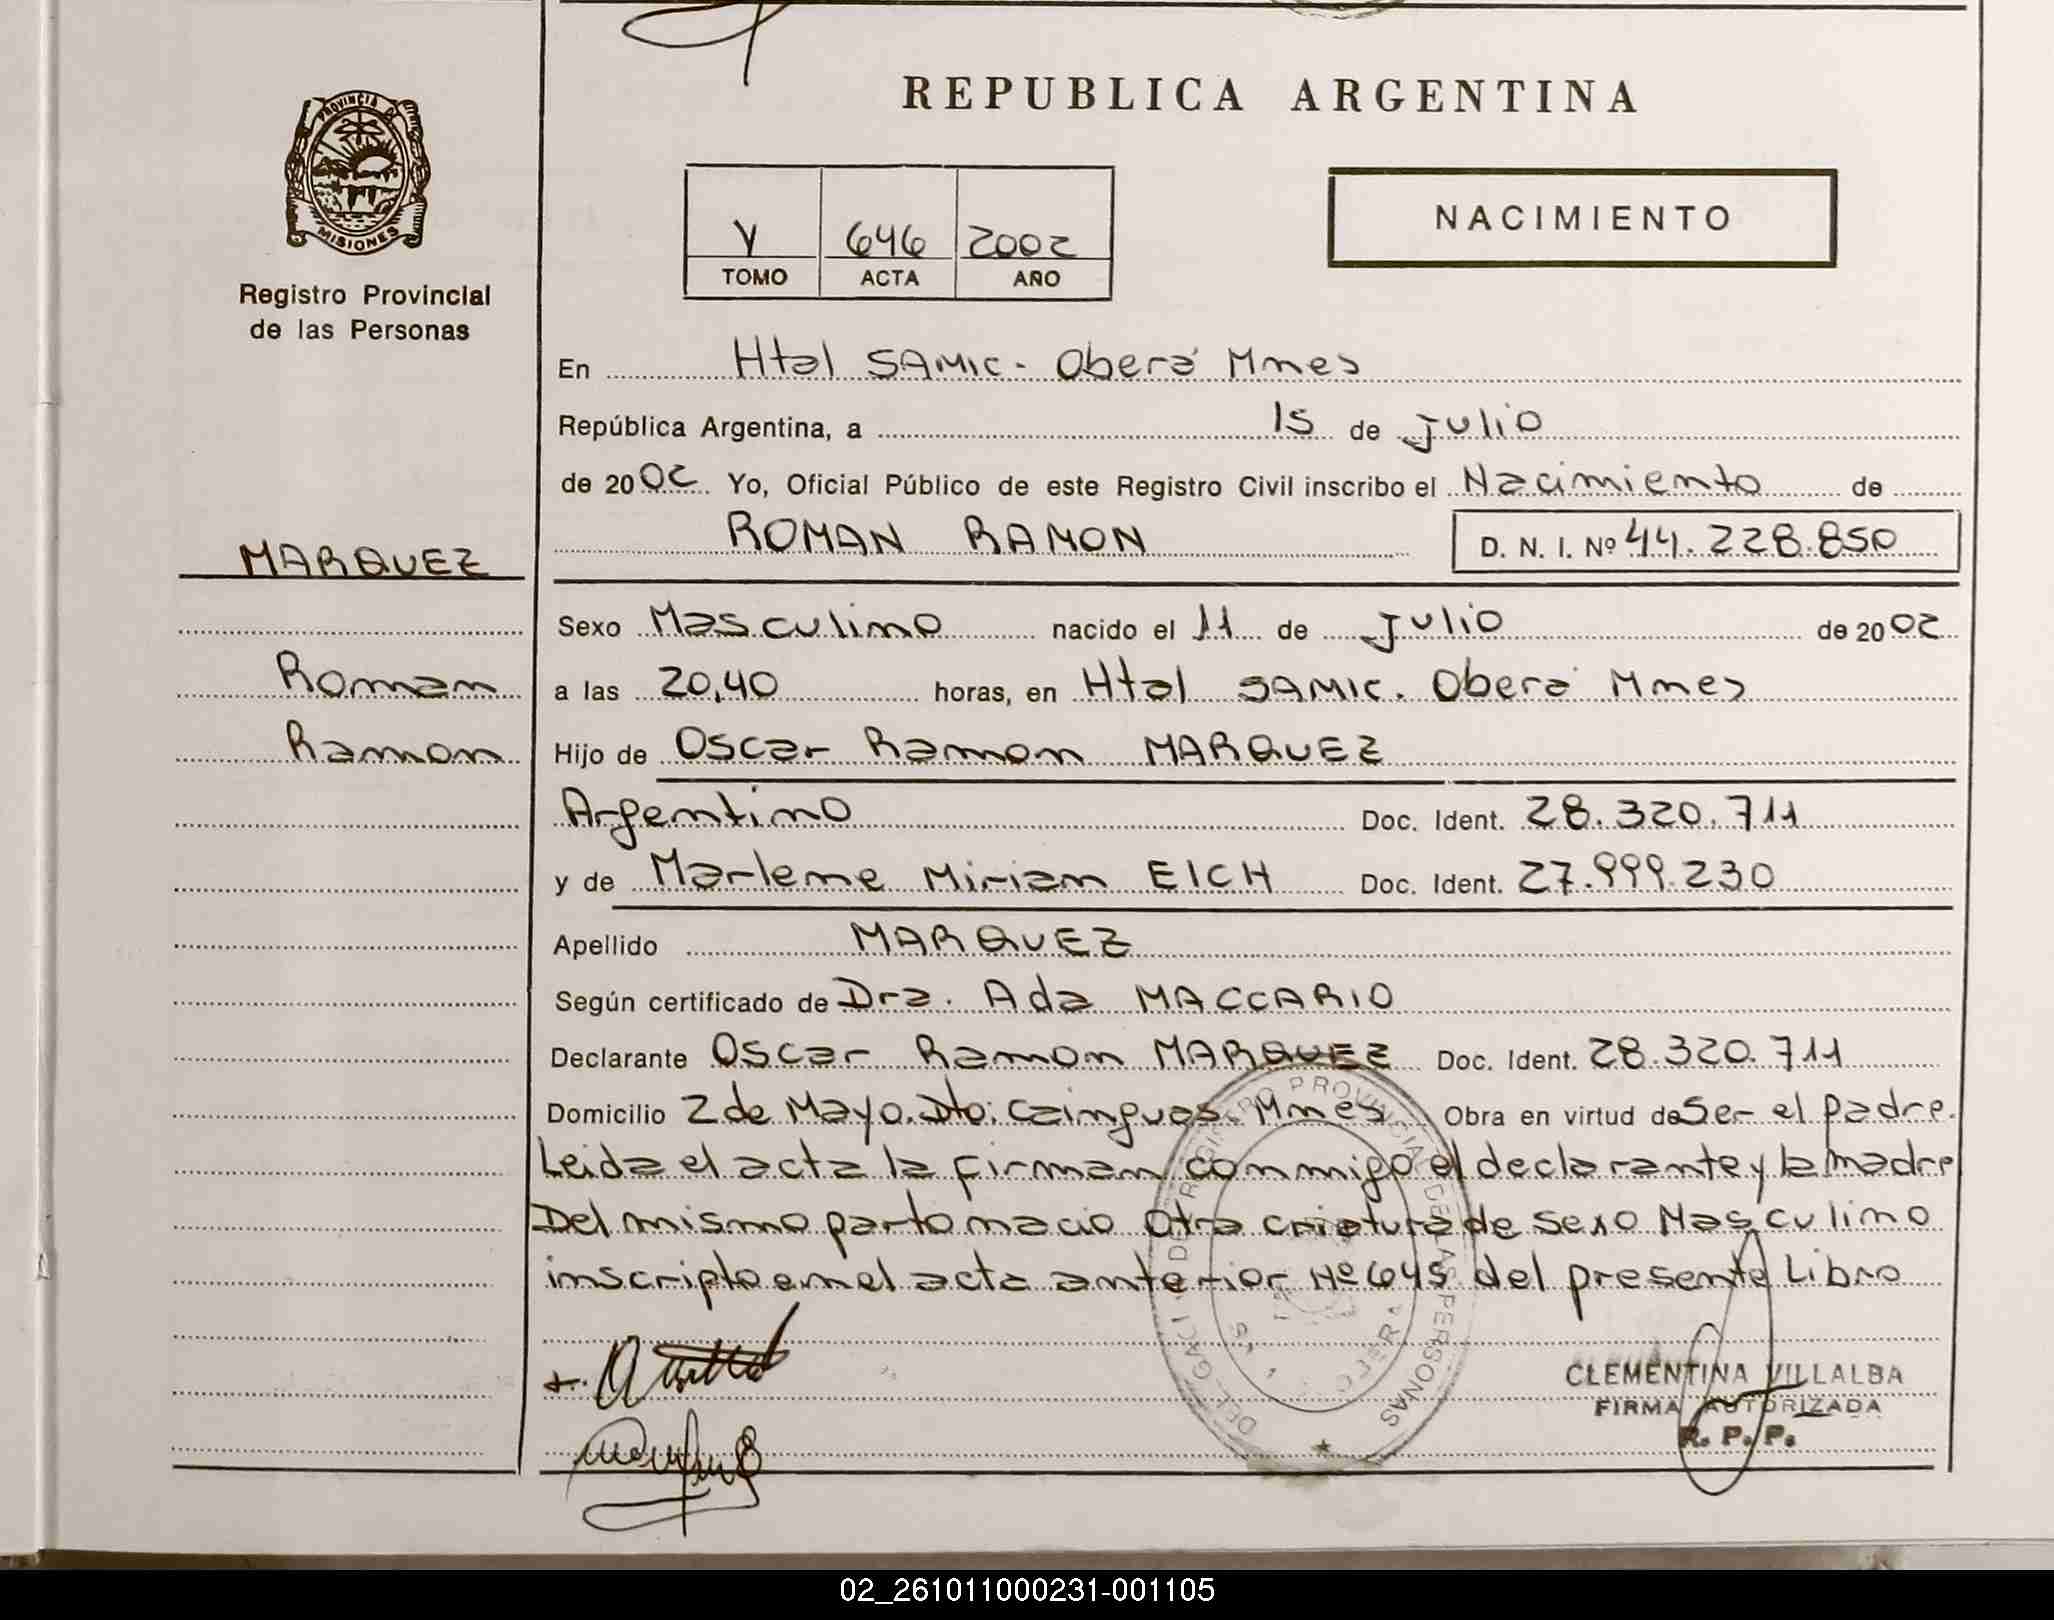 REPUBLICA ARGENTINA
PROVINCIA DE
MISIONES
Registro Provincial
de las Personas
V 646 2002
TOMO ACTA AÑO
NACIMIENTO
En Htal SAMIC - Oberá Mnes
República Argentina, a 15 de Julio
de 2002 Yo, Oficial Público de este Registro Civil inscribo el Nacimiento de
ROMAN RAMON D. N. I. Nº 44.228.850
MARQUEZ
Roman
Ramon
Sexo Masculino nacido el 11 de Julio de 2002
a las 20,40 horas, en Htal SAMIC. Oberá Mnes
Hijo de Oscar Ramon MARQUEZ
Argentino Doc. Ident. 28.320.711
y de Marlene Mirian EICH Doc. Ident. 27.999.230
Apellido MARQUEZ
Según certificado de Dra. Ada MACCARIO
Declarante Oscar Ramon MARQUEZ Doc. Ident. 28.320.711
Domicilio 2 de Mayo. Dto: Cainguas Mnes Obra en virtud de Ser el padre.
Leida el acta la firman conmigo el declarante y la madre
Del mismo parto nacio otra criatura de sexo Masculino
inscripto en el acta anterior Nº 645 del presente Libro
REGISTRO PROVINCIAL DE LAS PERSONAS
CLEMENTINA VILLALBA
FIRMA AUTORIZADA
R. P. P.
02_261011000231-001105